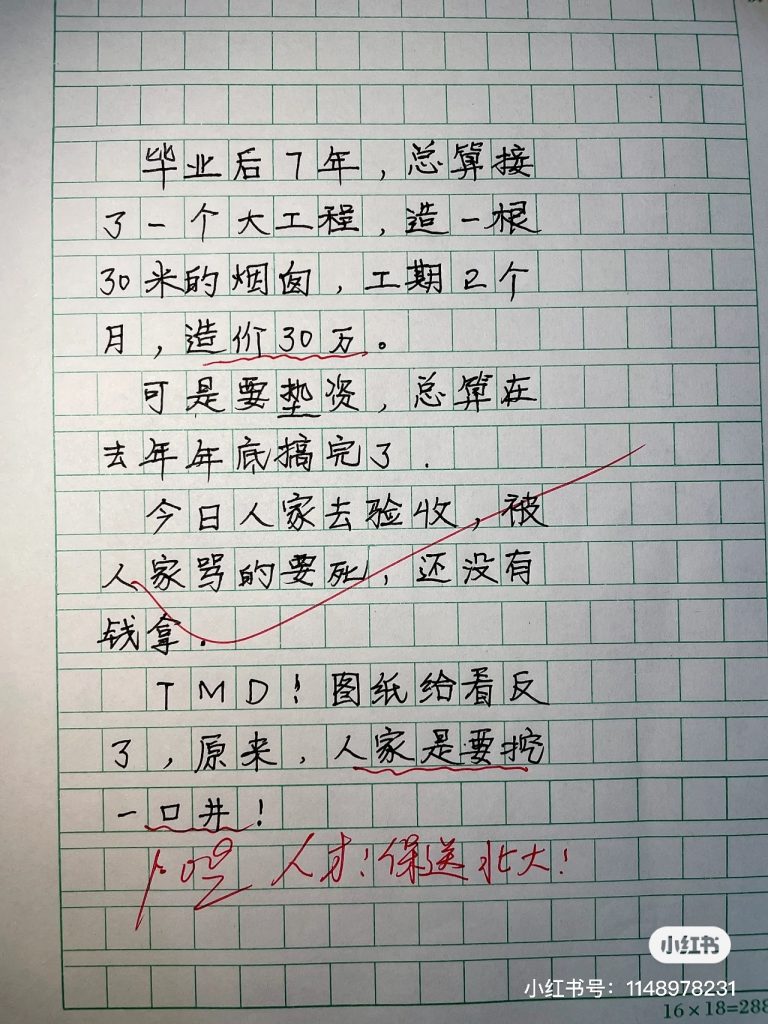 毕业后7年，总算接
了一个大工程，造一根
30米的烟囱，工期2个
月，造价30万。
可是要垫资，总算在
去年年底搞完了.
今日人家去验收，被
人家骂的要死，还没有
钱拿.
TMD!图纸给看反
了，原来，人家是要挖
一口井!
人才!保送北大!
小红书
小红书号：1148978231
16×18=288